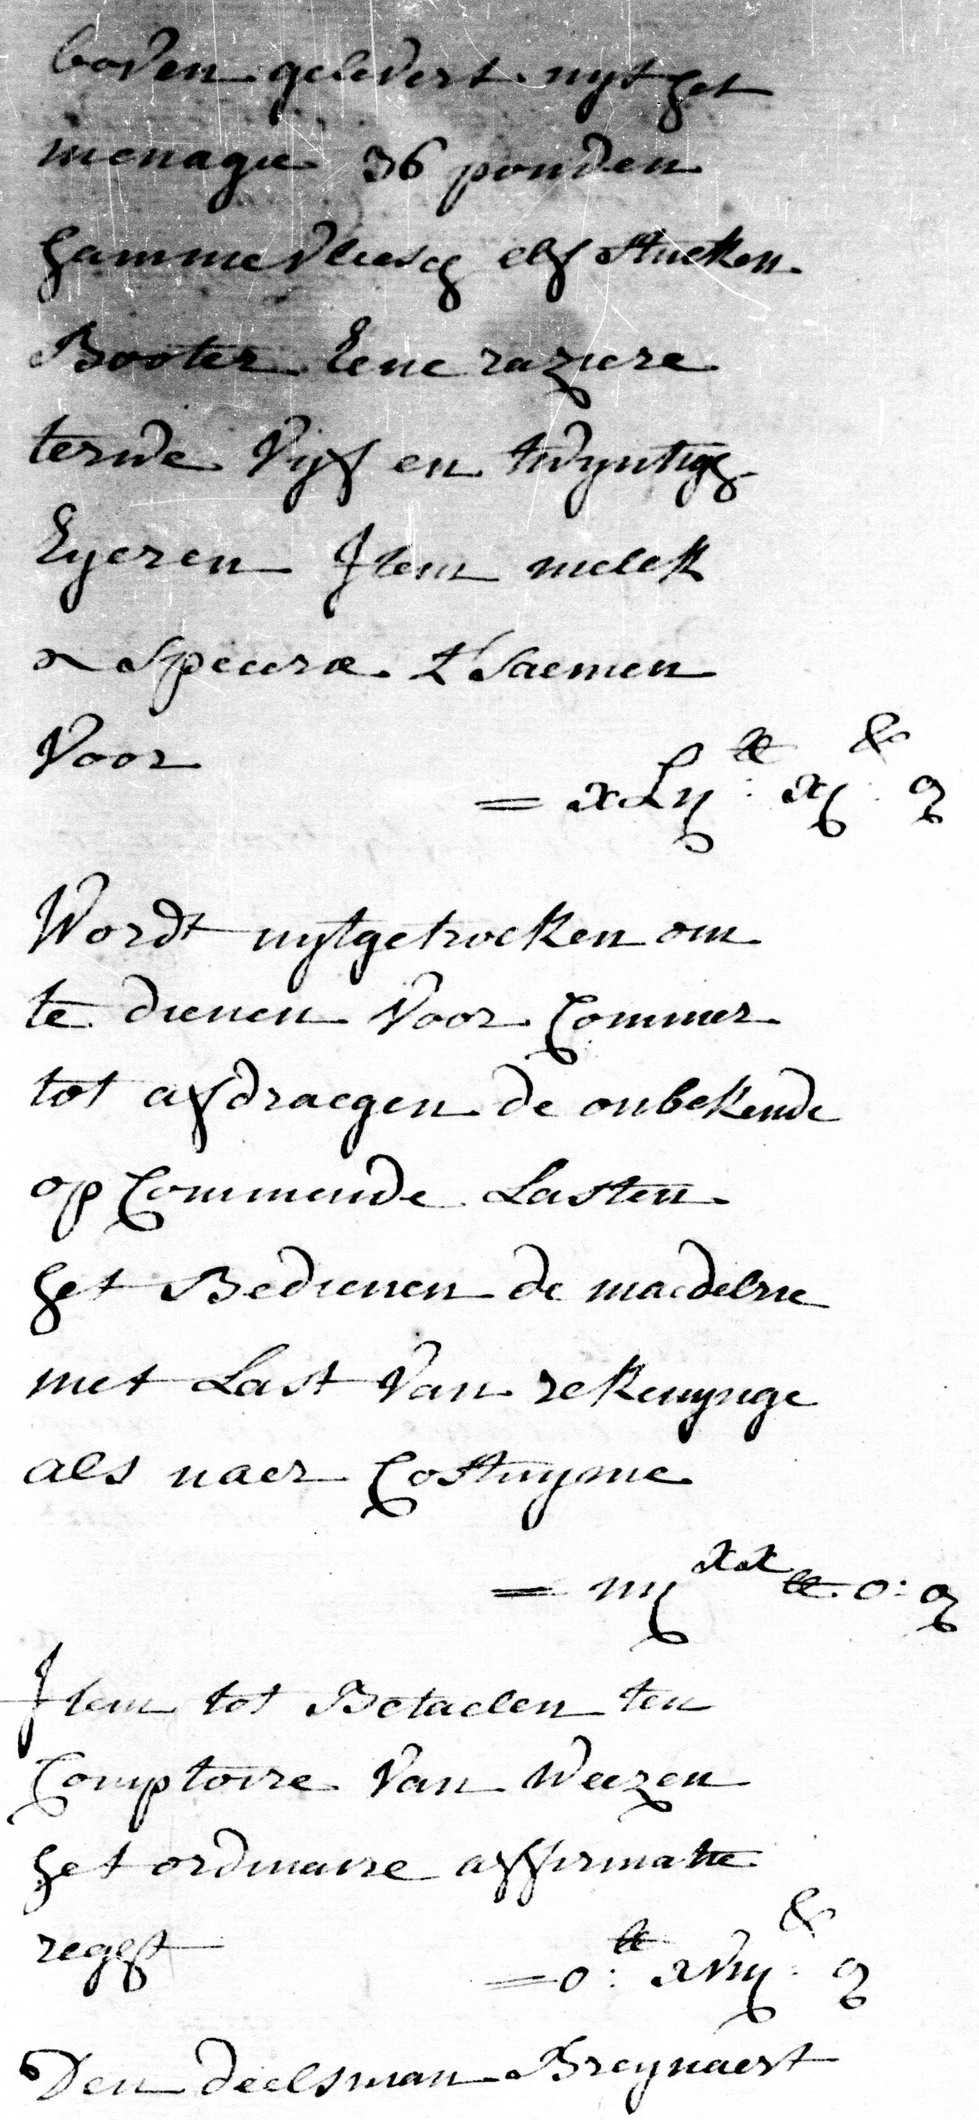 boven gelevert uyt het
menagie 36 ponden
hamme vleesch elf stucken
Booter Eene raziere
terwe Vyf en twyntigh
Eyeren Item melck
& Specerie t'saemen
Voor
= xLij: lb xj: s g
Wordt uytgetrocken om
te dienen Voor Commer
tot afdraegen de onbekende
op Commende Lasten
het Bedienen de maedelrie
met Last Van rekenynge
als naer Costuyme
= iiij xx lb 0: g
Item tot Betaelen ten
Comptoire Van Weezen
het ordinaire affirmatie
regst
= 0: lb xviij: s g
Den deelsman Breynaert